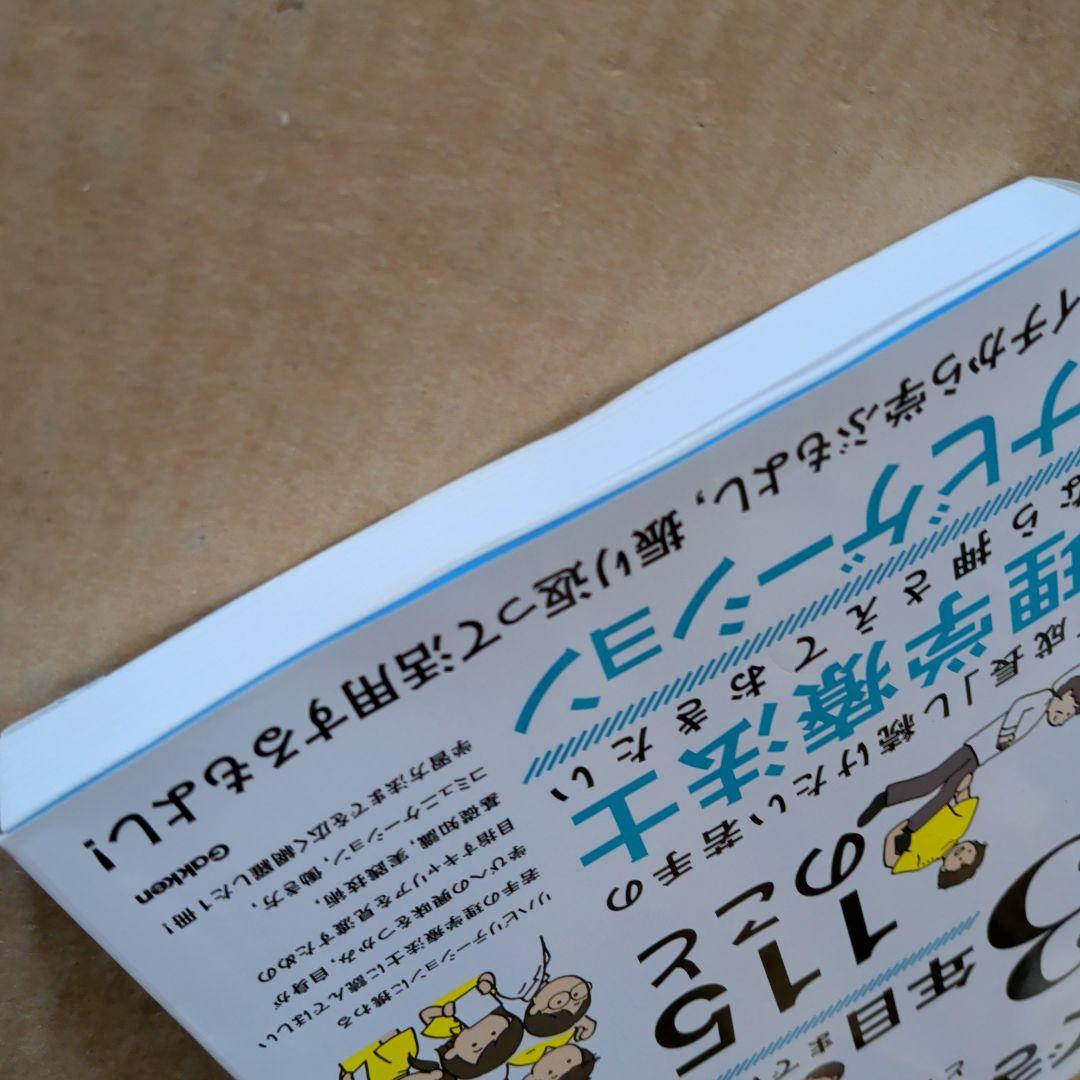 3
年目
まで
115のこと
成長」し続けたい若手の
理学療法士
なら押さえておきたい
ナビゲーション
イチから学ぶもよし，振り返って活用するもよし！
リハビリテーションに携わる
若手の理学療法士に読んでほしい
学びへの興味をつかみ，自身が
目指すキャリアを見渡すための
基礎知識，実践技術，
コミュニケーション，働き方，
学習方法までを広く網羅した1冊！
Gakken